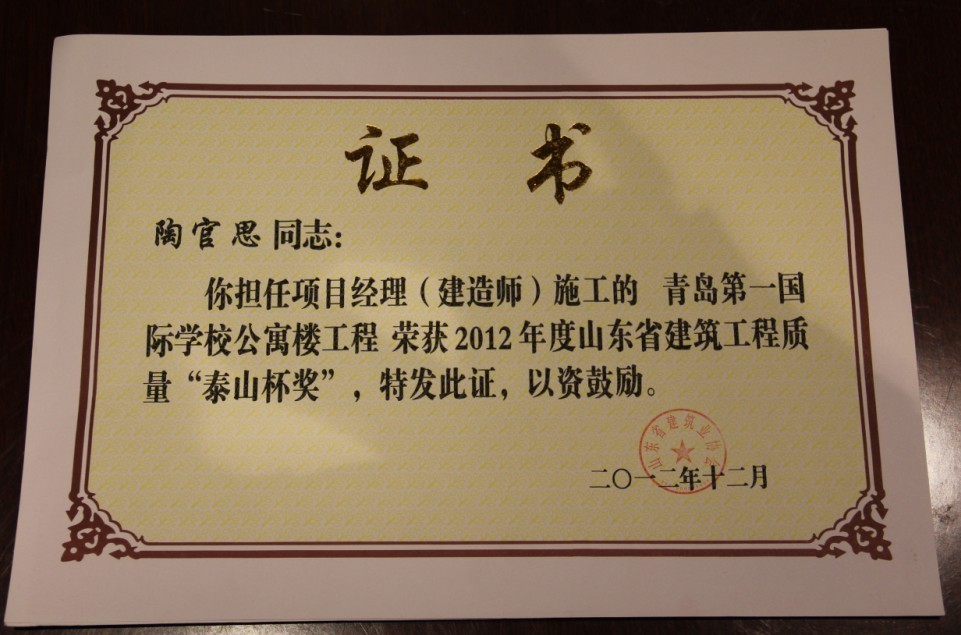 证 书
陶官思 同志：
你担任项目经理（建造师）施工的 青岛第一国
际学校公寓楼工程 荣获2012年度山东省建筑工程质
量“泰山杯奖”，特发此证，以资鼓励。
山东省建筑业协会
二〇一二年十二月